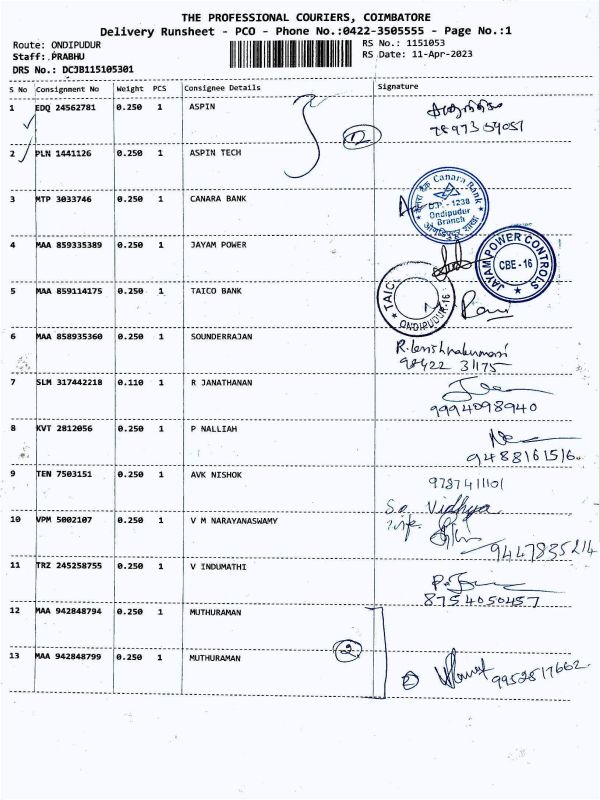 THE PROFESSIONAL COURIERS, COIMBATORE
Delivery Runsheet - PCO - Phone No.:0422-3505555 - Page No.:1
Route: ONDIPUDUR RS No.: 1151053
Staff: PRABHU RS Date: 11-Apr-2023
DRS No.: DCJB115105301
S No Consignment No Weight PCS Consignee Details Signature
1 EDQ 24562781 0.250 1 ASPIN
2 PLN 1441126 0.250 1 ASPIN TECH
3 MTP 3033746 0.250 1 CANARA BANK
Canara Bank
D.P. - 1238
Ondipudur
Branch
4 MAA 859335389 0.250 1 JAYAM POWER
JAYAM POWER CONTROLS
CBE - 16
5 MAA 859114175 0.250 1 TAICO BANK
TAIC
ONDIPUDUR-16
6 MAA 858935360 0.250 1 SOUNDERRAJAN
98422 31175
7 SLM 317442218 0.110 1 R JANATHANAN
9994098940
8 KVT 2812056 0.250 1 P NALLIAH
9488161516
9 TEN 7503151 0.250 1 AVK NISHOK
9787411101
10 VPM 5002107 0.250 1 V M NARAYANASWAMY
Vidhya
9447835214
11 TRZ 245258755 0.250 1 V INDUMATHI
8754050457
12 MAA 942848794 0.250 1 MUTHURAMAN
13 MAA 942848799 0.250 1 MUTHURAMAN
2
9952817662